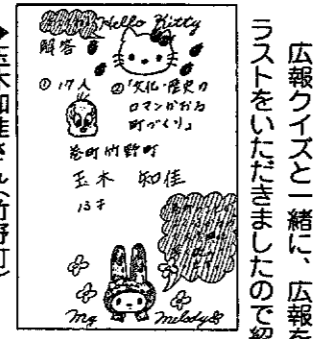 広報クイズと一緒に、広報を
ラストをいただきましたので紹
Hello Kitty
解答
① 17人 ②「文化・歴史の
ロマンがおる
町づくり」
巻町竹野町
玉木 知佳
13才
My Melody
◆玉木知佳さん(竹野町)